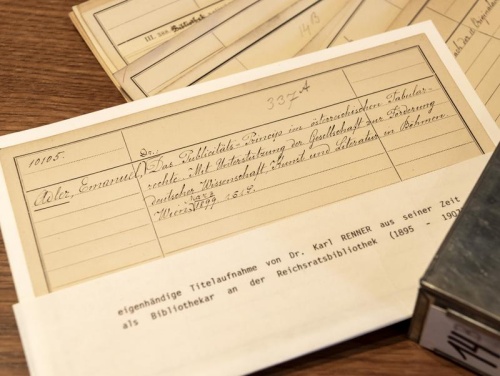 337 A
10105.
Dr.
Adler, Emanuel, Das Publicitäts-Princip im österreichischen Tabular-
rechte. Mit Unterstützung der Gesellschaft zur Förderung
deutscher Wissenschaft, Kunst und Literatur in Böhmen
Wien 1899
eigenhändige Titelaufnahme von Dr. Karl RENNER aus seiner Zeit
als Bibliothekar an der Reichsratsbibliothek (1895 - 1907